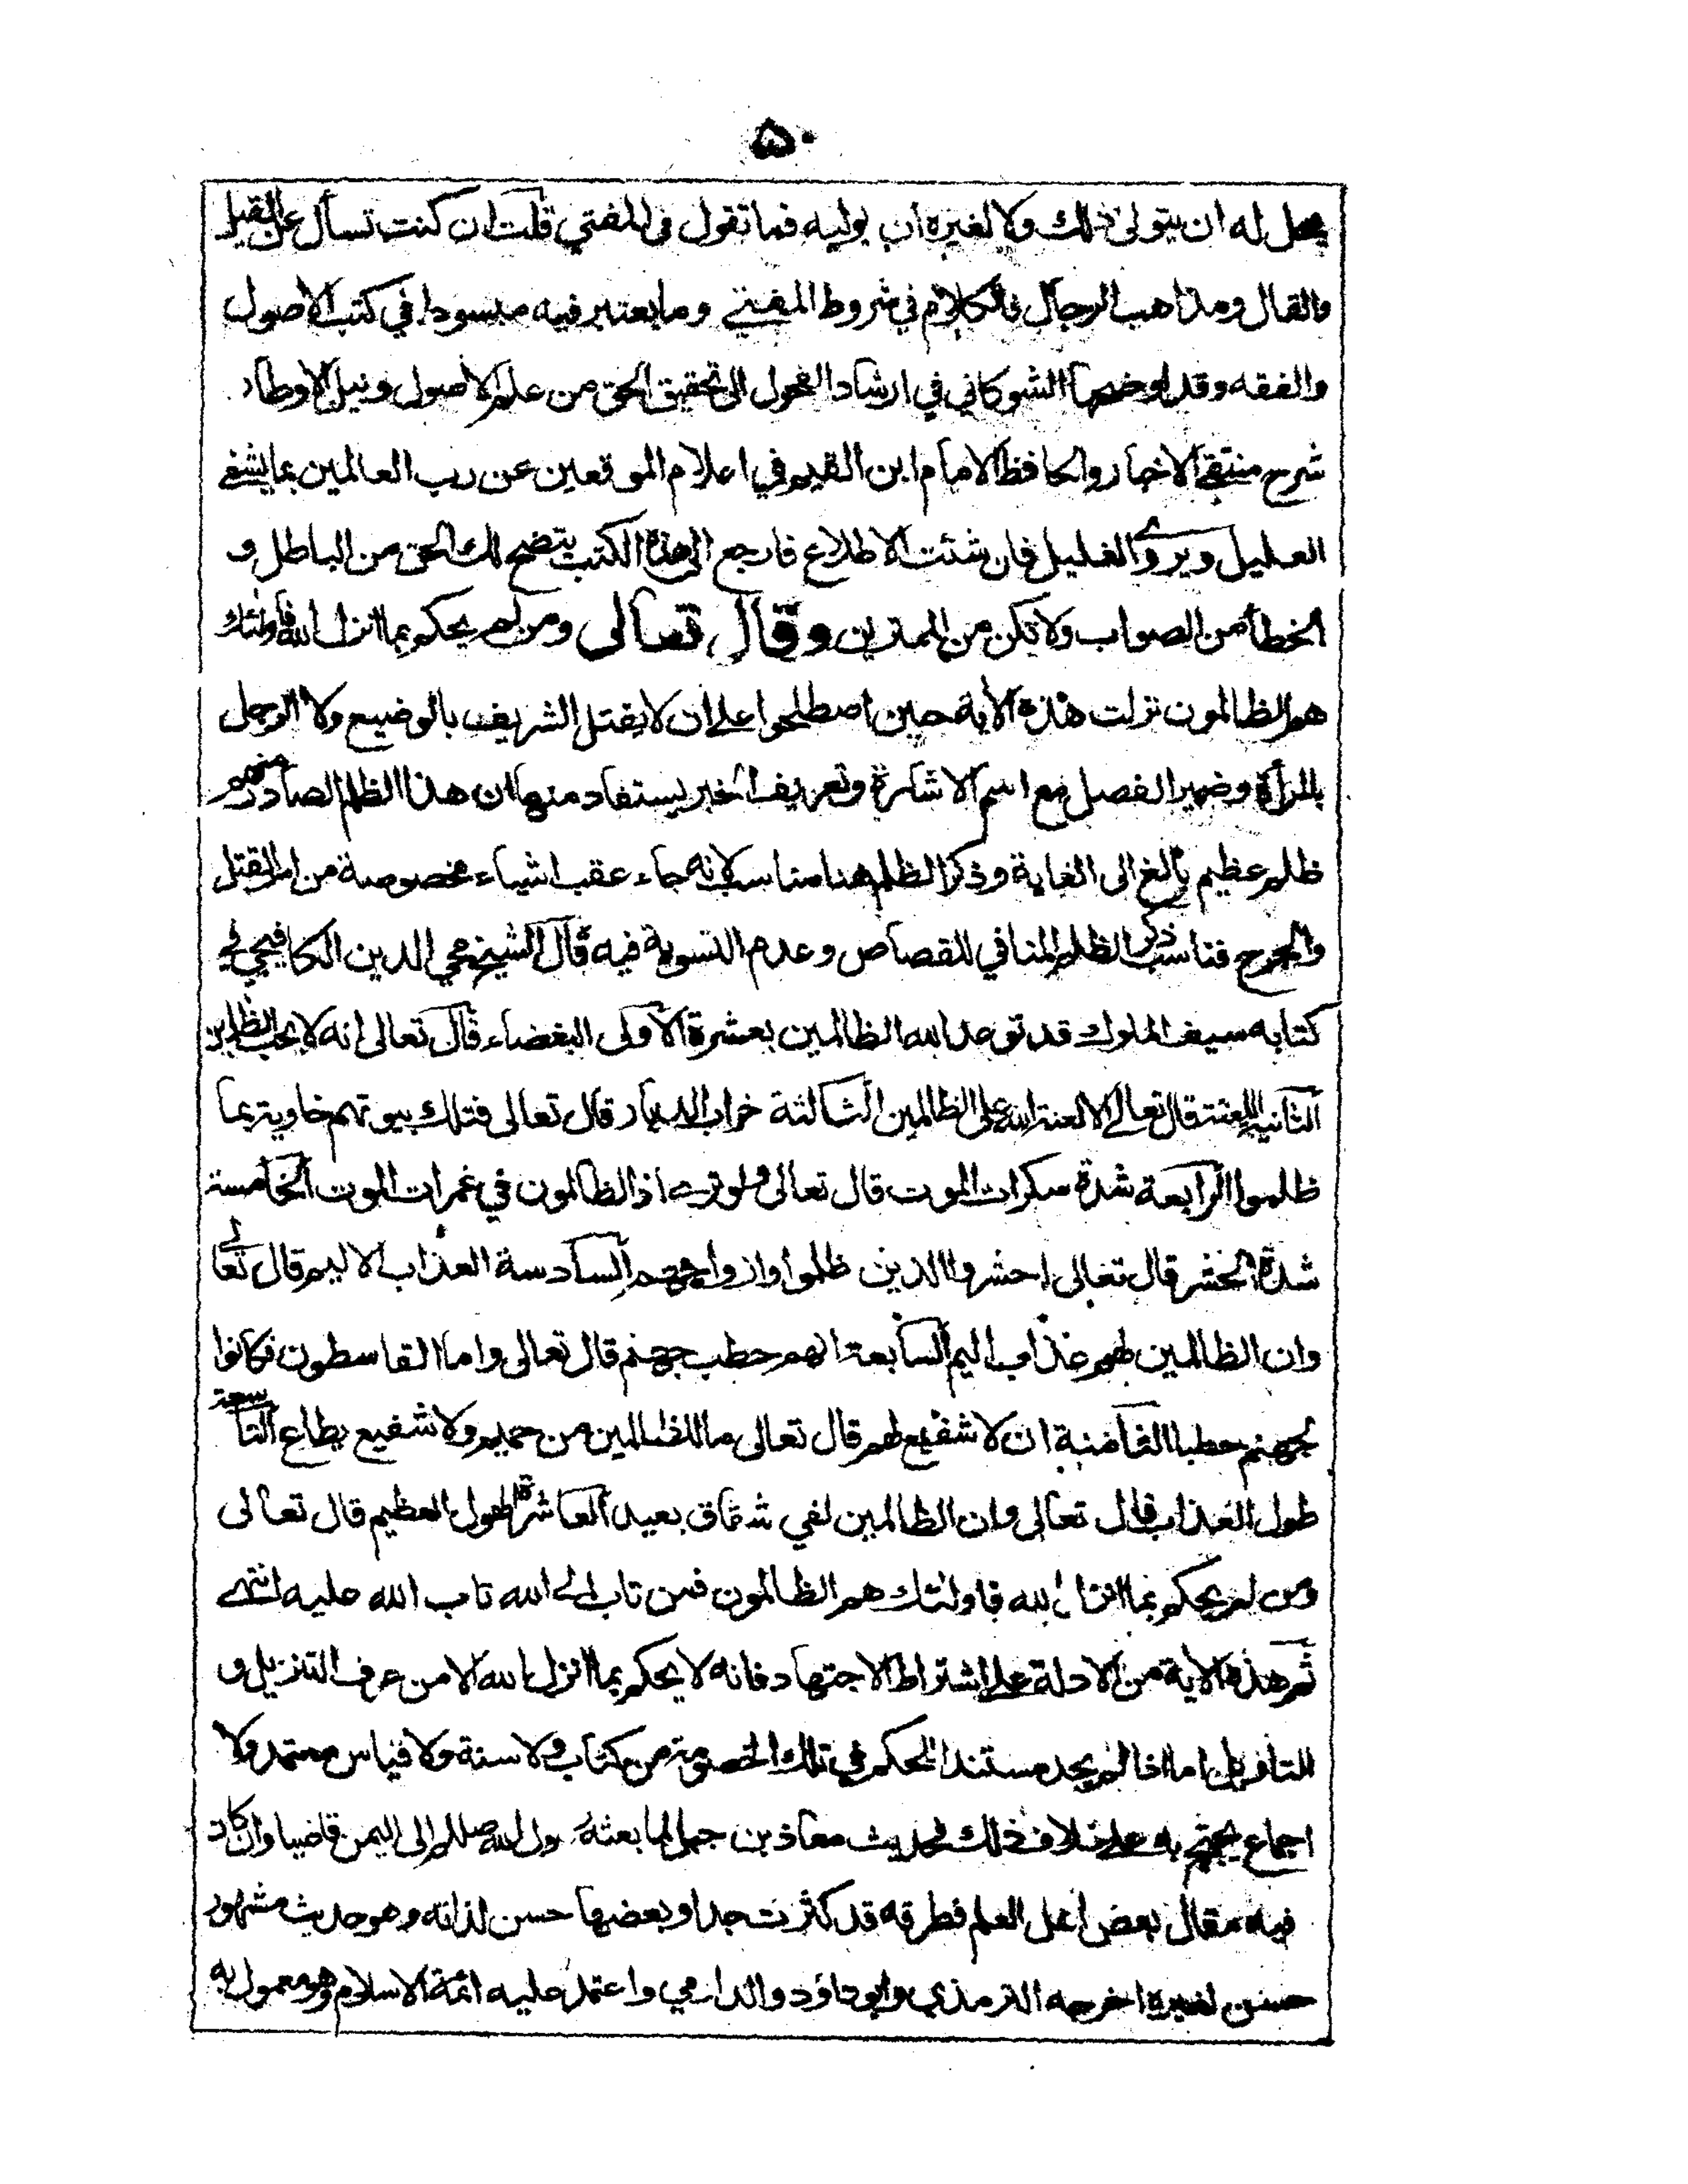 ۵۰
يحل له ان يتولى ذلك ولا لغيره ان يوليه فما تقول فى المفتي قلت ان كنت تسأل عن القيل
والقال ومذاهب الرجال فالكلام في شروط المفتي وما يعتبر فيه مبسوط في كتب الاصول
والفقه وقد اوضحها الشوكاني في ارشاد الفحول الى تحقيق الحق من علم الاصول ونيل الاوطار
شرح منتقى الاخبار والحافظ الامام ابن القيم في اعلام الموقعين عن رب العالمين بما يشفى
العليل ويروى الغليل فان شئت الاطلاع فارجع الى هذه الكتب يتضح لك الحق من الباطل و
الخطأ من الصواب ولا تكن من الممترين وقال تعالى ومن لم يحكم بما انزل الله فاولئك
هم الظالمون نزلت هذه الآية حين اصطلحوا على ان لا يقتل الشريف بالوضيع ولا الرجل
بالمرأة وضمير الفصل مع اسم الاشارة وتعريف الخبر يستفاد منها ان هذا الظلم الصادر منهم
ظلم عظيم بالغ الى الغاية وذكر الظلم هنا مناسب لانه جاء عقب اشياء مخصوصة من امر القتل
والجرح فناسب ذكر الظلم المنافي للقصاص وعدم التسوية فيه قال الشيخ محي الدين الكافيجي في
كتابه سيف الملوك قد توعد الله الظالمين بعشرة الأولى البغضاء قال تعالى انه لا يحب الظالمين
الثانية اللعنة قال تعالى الا لعنة الله على الظالمين الثالثة خراب الديار قال تعالى فتلك بيوتهم خاوية بما
ظلموا الرابعة شدة سكرات الموت قال تعالى ولو ترى اذ الظالمون في غمرات الموت الخامسة
شدة الحشر قال تعالى احشروا الذين ظلموا وازواجهم السادسة العذاب الاليم قال تعالى
وان الظالمين لهم عذاب اليم السابعة انهم حطب جهنم قال تعالى واما القاسطون فكانوا
لجهنم حطبا الثامنة ان لا شفيع لهم قال تعالى ما للظالمين من حميم ولا شفيع يطاع التاسعة
طول العذاب قال تعالى وان الظالمين لفي شقاق بعيد العاشرة الهول العظيم قال تعالى
ومن لم يحكم بما انزل الله فاولئك هم الظالمون فمن تاب الى الله تاب الله عليه انتهى
ثم هذه الآية من الادلة على اشتراط الاجتهاد فانه لا يحكم بما انزل الله الا من عرف التنزيل و
التأويل اما اذا لم يجد مستند الحكم في تلك الخصومة من كتاب ولا سنة ولا قياس معتمد ولا
اجماع يحتج به على خلاف ذلك لحديث معاذ بن جبل لما بعثه رسول الله صللم الى اليمن قاضيا وان كان
فيه مقال بعض اهل العلم فطرقه قد كثرت جدا وبعضها حسن لذاته وهو حديث مشهور
حسن لغيره اخرجه الترمذي وابو داؤد والدارمي واعتمد عليه ائمة الاسلام وهو معمول به